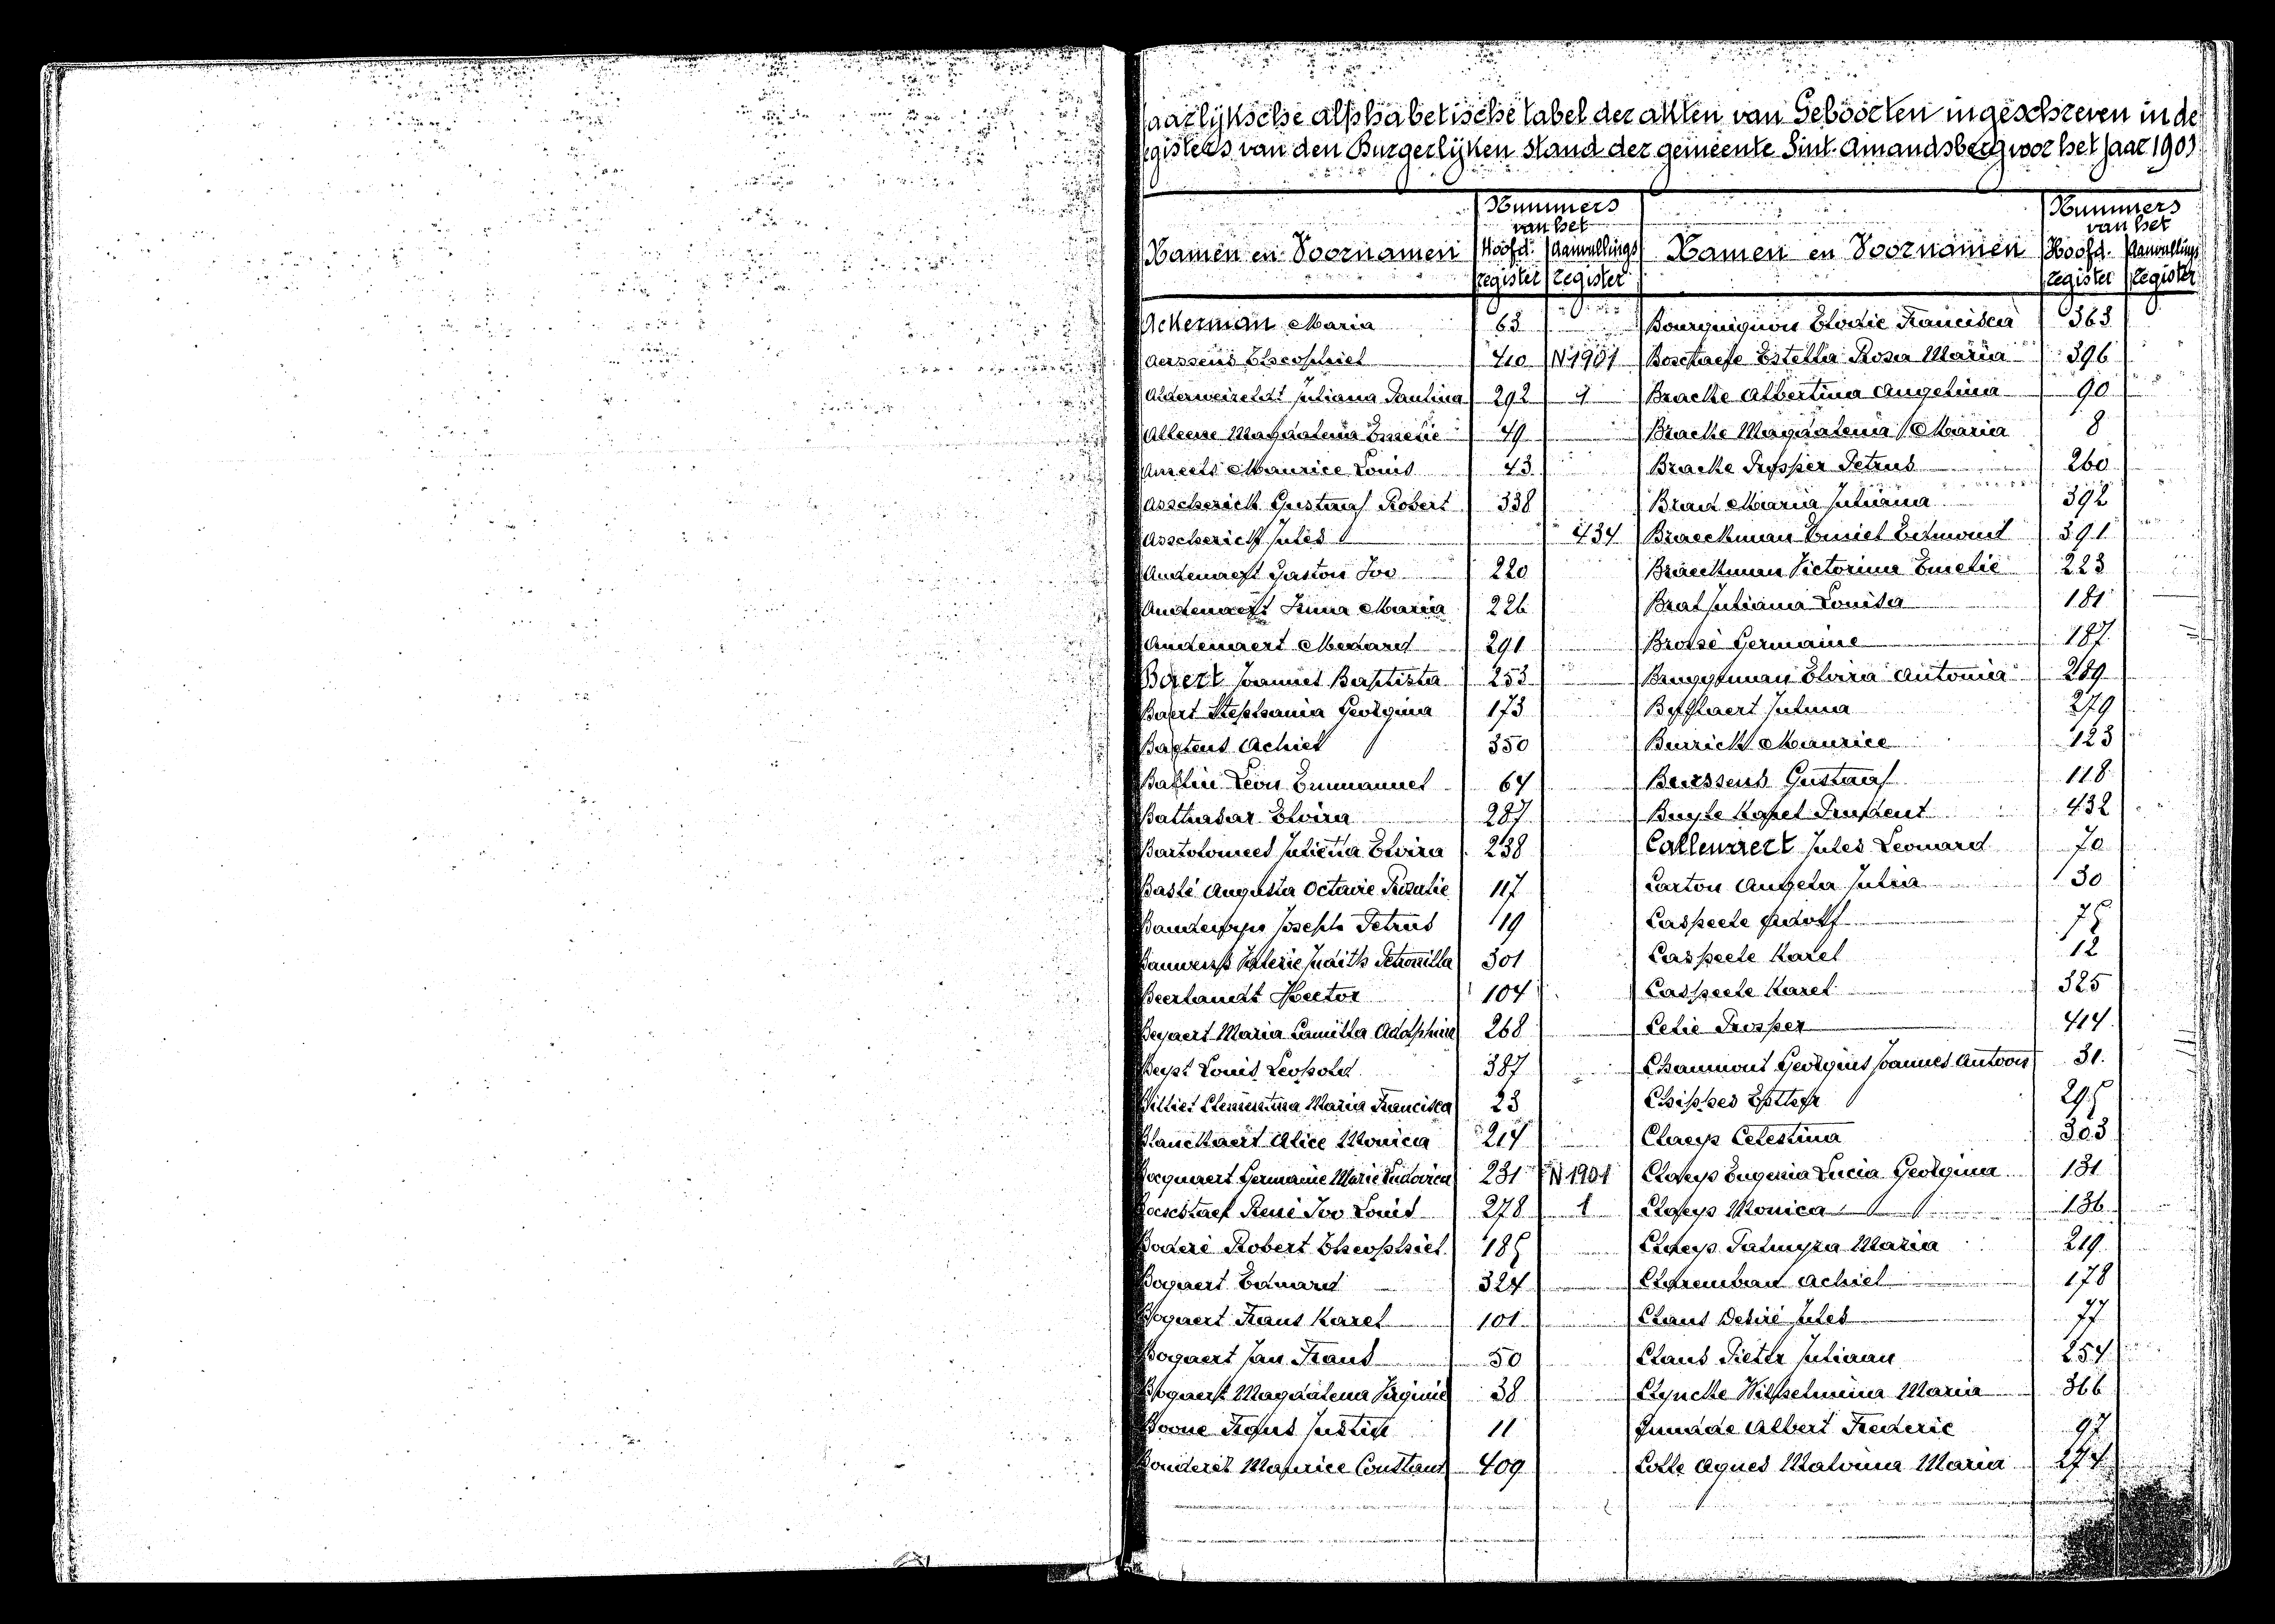 Jaarlijksche alphabetische tabel der akten van Geboorten ingeschreven in de
registers van den Burgerlijken Stand der gemeente Sint Amandsberg voor het jaar 190
Namen en Voornamen Nummers van het Hoofd. register Aanvullings register Namen en Voornamen Nummers van het Hoofd. register Aanvullings register
Ackerman Maria 63
Aerssens Theophiel 410 N 1901
Alderweireldt Juliana Paulina 292 1
Alleene Magdalena Emelie 49
Ameels Maurice Louis 43
Asscherick Gustaaf Robert 338
Asscherick Jules 434
Audenaert Gaston Ivo 220
Audenaert Irma Maria 226
Audenaert Medard 291
Baert Joannes Baptista 253
Baert Stephania Georgina 173
Baetens Achiel 350
Baflin Leon Emmanuel 64
Balthasar Elvira 287
Bartolomees Julietta Elvira 238
Baslé Augusta Octavie Rosalie 117
Joseph Petrus 119
Bauwens Valerie Judith Petronilla 301
Beerlandt Hector 104
Beyaert Maria Camilla Adolphine 268
Beyst Louis Leopold 387
Billiet Clementina Maria Francisca 23
Blanckaert Alice Monica 217
Bocquaert Germanie Marie Ludovica 231 N 1901
Boeschtaef René Ivo Louis 278 1
Boderé Robert Theophiel 185
Bogaert Eduard 324
Bogaert Frans Karel 101
Bogaert Jan Frans 50
Bogaert Magdalena Virginie 38
Boone Frans Justin 11
Bouderez Maurice Constant 409
Bourguignon Elodie Francisca 363
Boschaefe Estella Rosa Maria 396
Bracke Albertina Angelina 90
Bracke Magdalena Maria 8
Bracke Prosper Petrus 260
Maria Juliana 392
Braeckman Emiel Edmond 391
Braeckman Victorina Emelie 223
Brat Juliana Louisa 181
Brossé Germaine 187
Bruggeman Elvira Antonia 289
Julma 279
Burrick Maurice 123
Burssens Gustaaf 118
Buyle Karel Prudent 432
Callewaert Jules Leonard 70
Carton Angela Julia 30
Caspeele Adolf 75
Caspeele Karel 12
Caspeele Karel 325
Celie Prosper 414
Chaumont Georgius Joannes Antoon 31
Chippes Esther 295
Claeys Celestina 303
Claeys Eugenia Lucia Georgina 131
Claeys Monica 136
Claeys Palmyra Maria 219
Claremban Achiel 178
Claus Desiré Jules 77
Claus Pieter Juliaan 254
Clyncke Wilhelmina Maria 366
Albert Frederic 97
Colle Agnes Malvina Maria 274